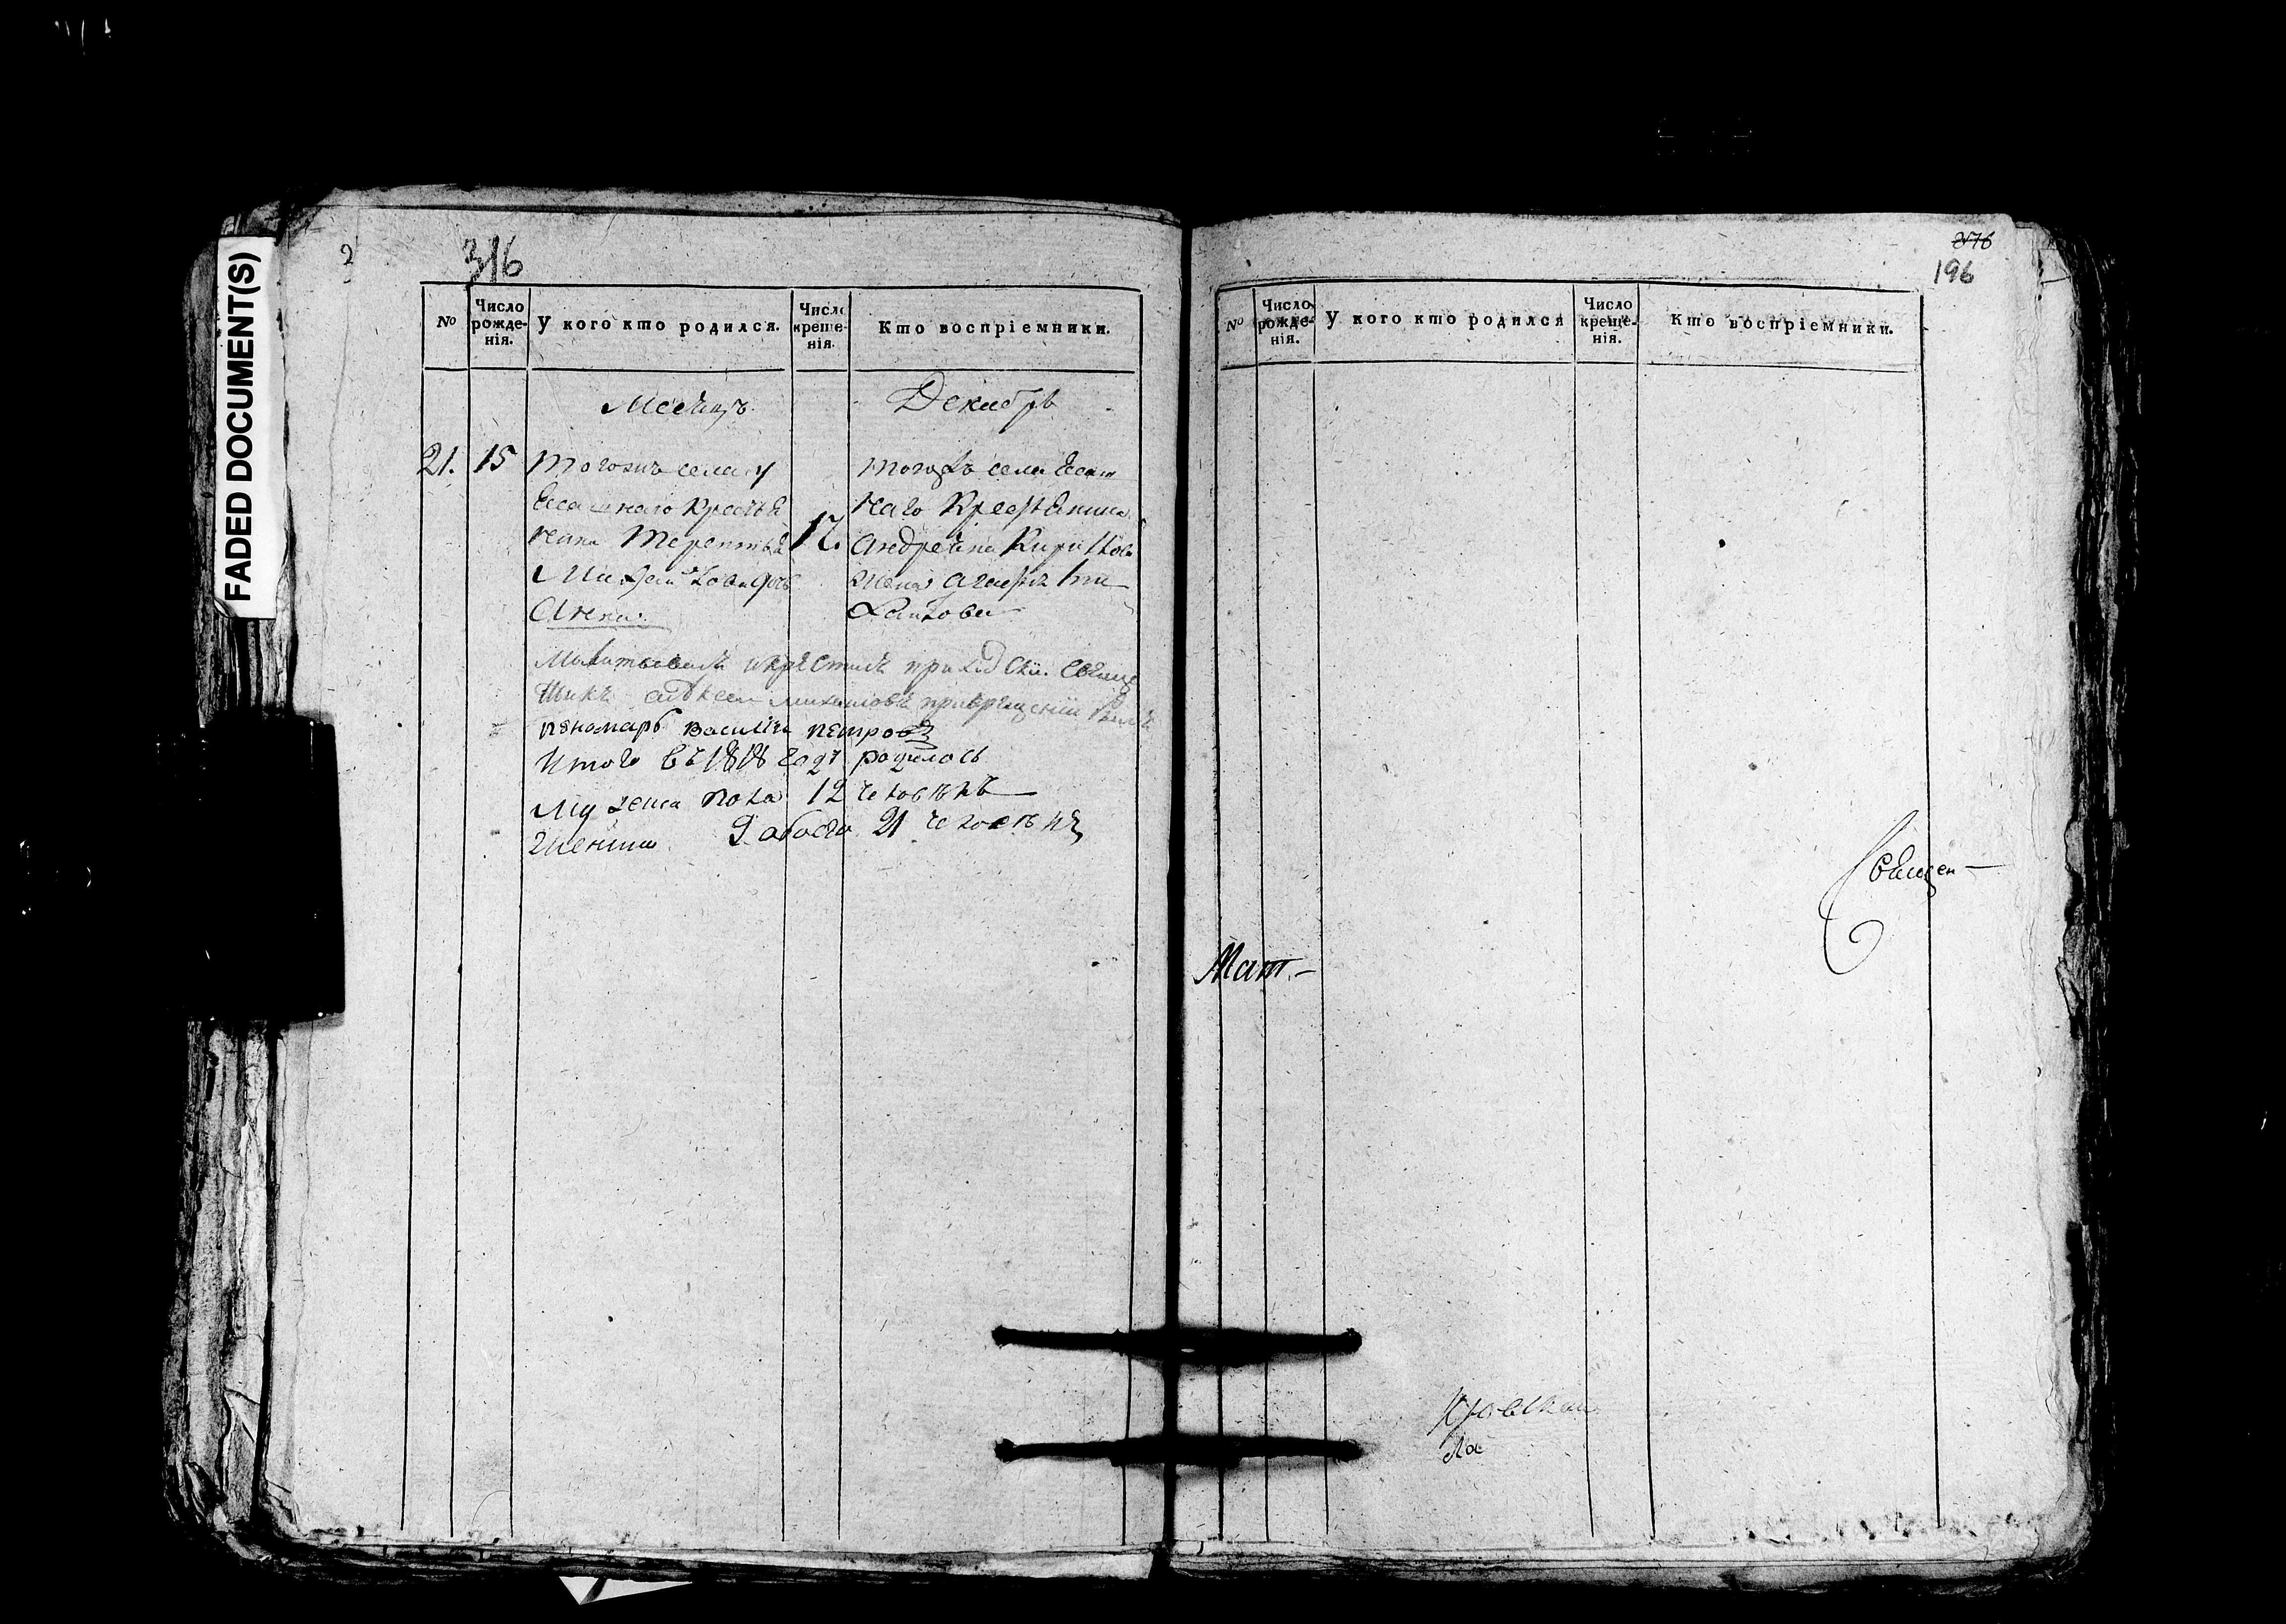 FADED DOCUMENT(S)
316
№ Число рожденія. У кого кто родился. Число крещенія. Кто воспріемники.
Месецъ Декабрь
21. 15 Тогожъ села у
Ясашнаго Крестья
нина Терентья
Михайлова дочь
Анна
17.
Тогожъ села Ясаш
наго Крестьянина
Андреяна
жена
Молитвовалъ и крѣстилъ приход
Михаиловъ при
пономарь василіи петровъ
Итого въ 1818 году родилось
мужеска пола 12 человѣкъ
женска 9 обоего 21 человѣкъ
276
196
№ Число рожденія. У кого кто родился Число крещенія. Кто воспріемники.
Священ-
Мат-
Ла